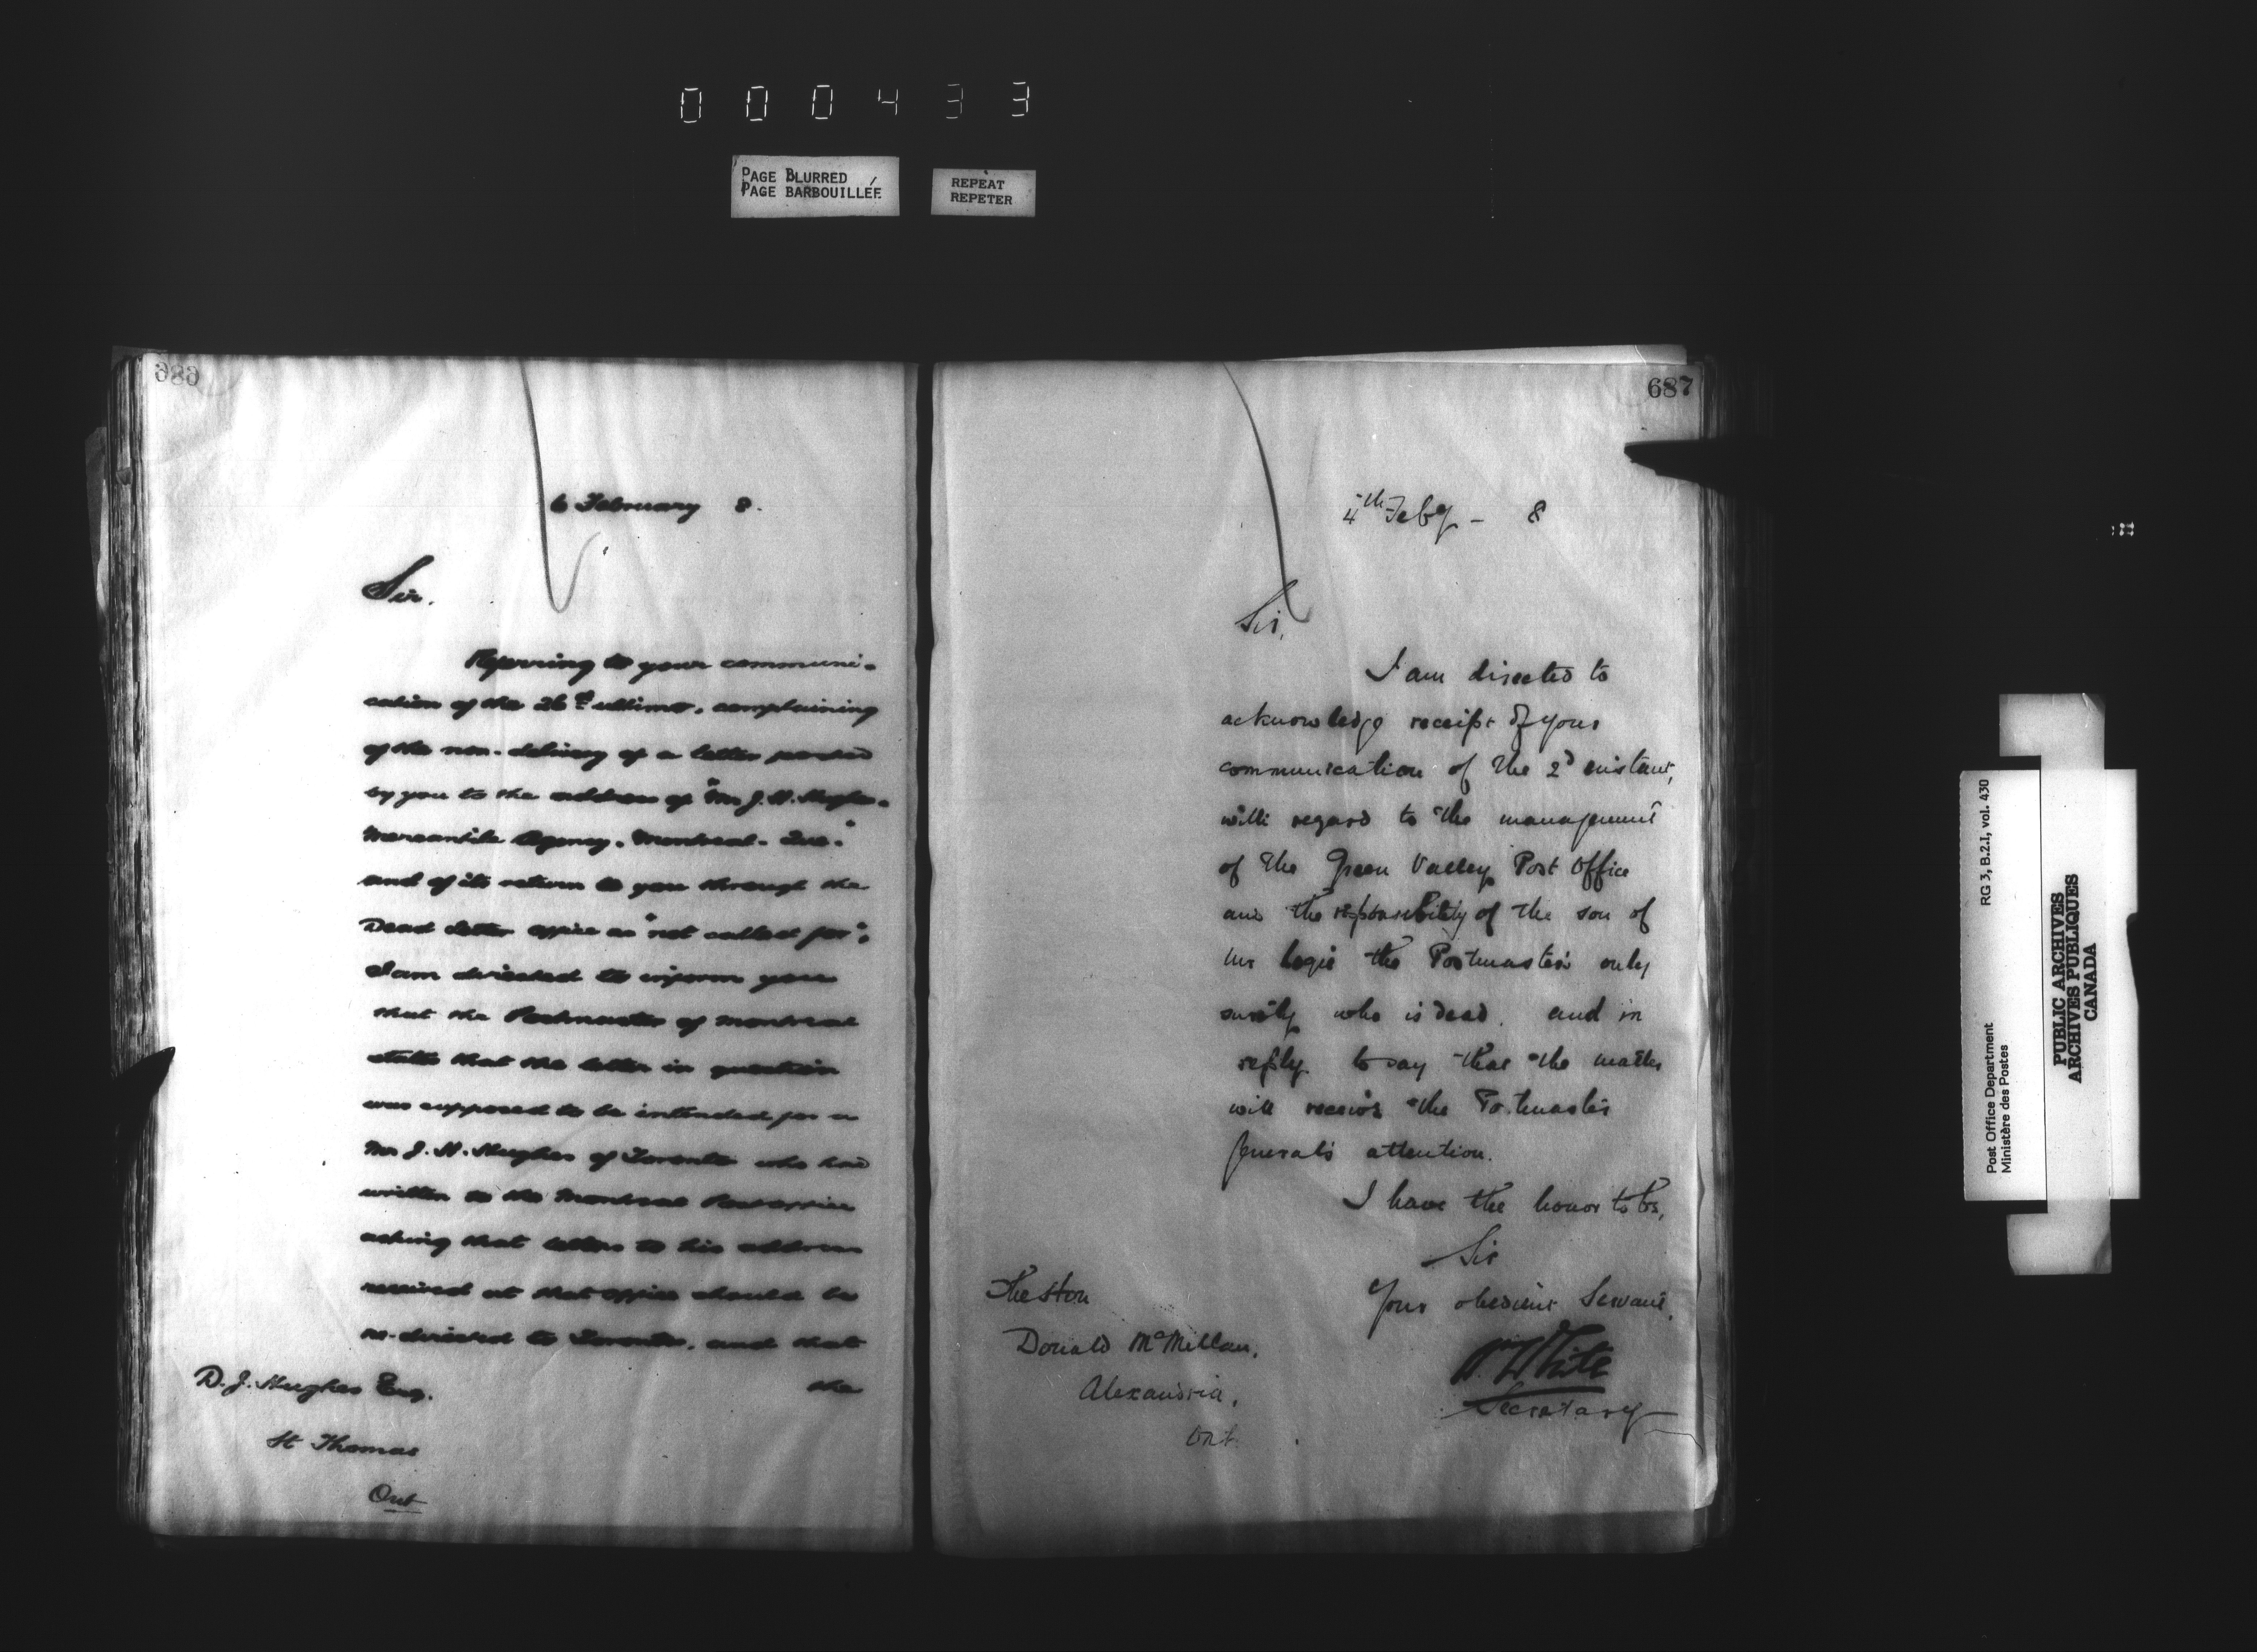 000433
PAGE BLURRED
PAGE BARBOUILLÉE
REPEAT
REPETER
686
6 February 8.
Sir.
Referring to your communi-
cation of the 26th ultimo, complaining
of the non-delivery of a letter posted
by you to the address of "Mr J. H. Hughes-
Mercantile Agency. Montreal. Que."
and of its return to you through the
Dead Letter Office as "not called for",
I am directed to inform you
that the Postmaster of Montreal
states that the letter in question
was supposed to be intended for a
Mr J. H. Hughes of Toronto who had
written to the Montreal Post office
asking that letters to his address
received at that office should be
re-directed to Toronto, and that
the
D. J. Hughes Esq.
St Thomas
Ont
687
4th Feby - 8
Sir,
I am directed to
acknowledge receipt of your
communication of the 2d instant,
with regard to the management
of the Green Valley Post Office
and the responsibility of the son of
the Postmaster's only
surety who is dead. and in
reply to say that the matter
will receive the Postmaster
General's attention.
I have the honor to be,
Sir
Your obedient Servant,
Wm White
Secretary
Donald McMillan,
Alexandria,
Ont
Post Office Department
Ministère des Postes
RG 3, B.2.I, vol. 430
PUBLIC ARCHIVES
ARCHIVES PUBLIQUES
CANADA